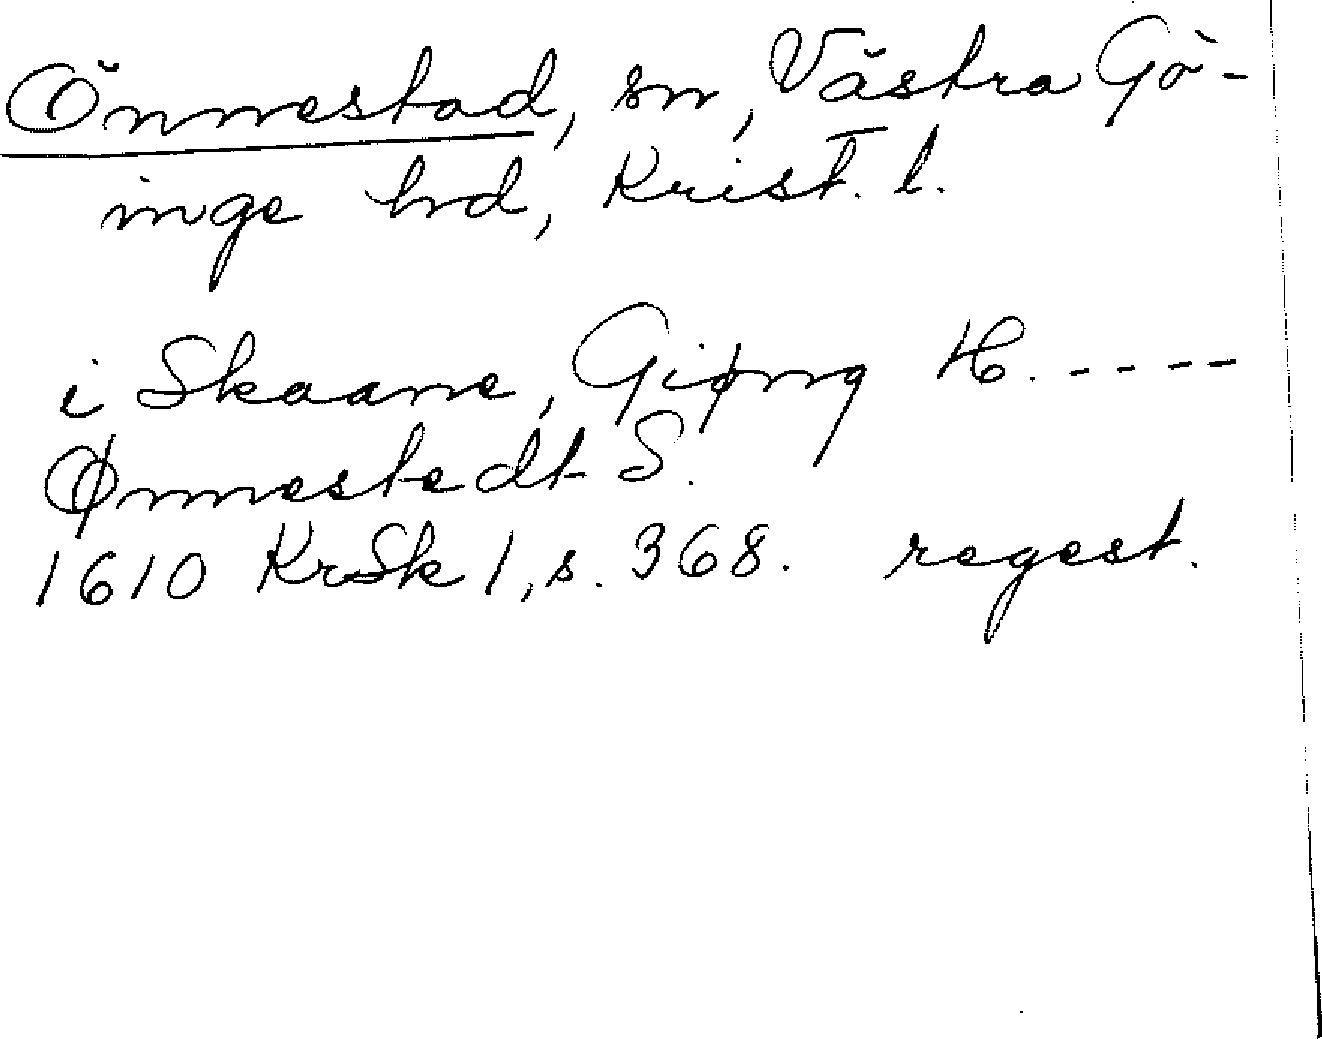 Önnestad, sn, Västra Gö-
inge hrd, Krist. l.
i Skaane, Giøng H. - - - -
Ønnestedt S.
1610 KrSk 1, s. 368. regest.